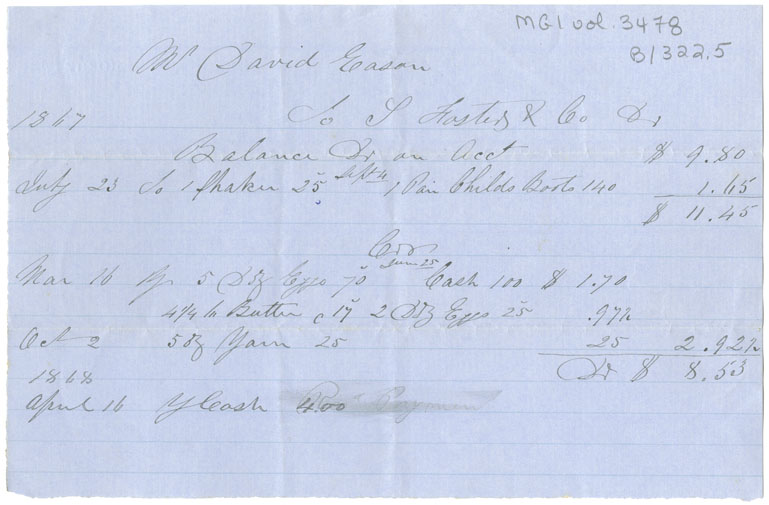 MG1 vol. 3478
B1322.5
Mr David Eason
1867 To S Foster & Co Dr
Balance Dr on Acct $ 9.80
July 23 To 1 Shaker 25 Sept 4 1 Pair Childs Boots 140 1.65
$ 11.45
Crs
June 25
Mar 16 By 5 Dz Eggs 70 Cash 100 $ 1.70
4 1/4 lb Butter c 17 2 Dz Eggs 25 .97½
Oct 2 5 oz Yarn 25 25 2.92½
Dr $ 8.53
1868
April 16 Cash 4.00